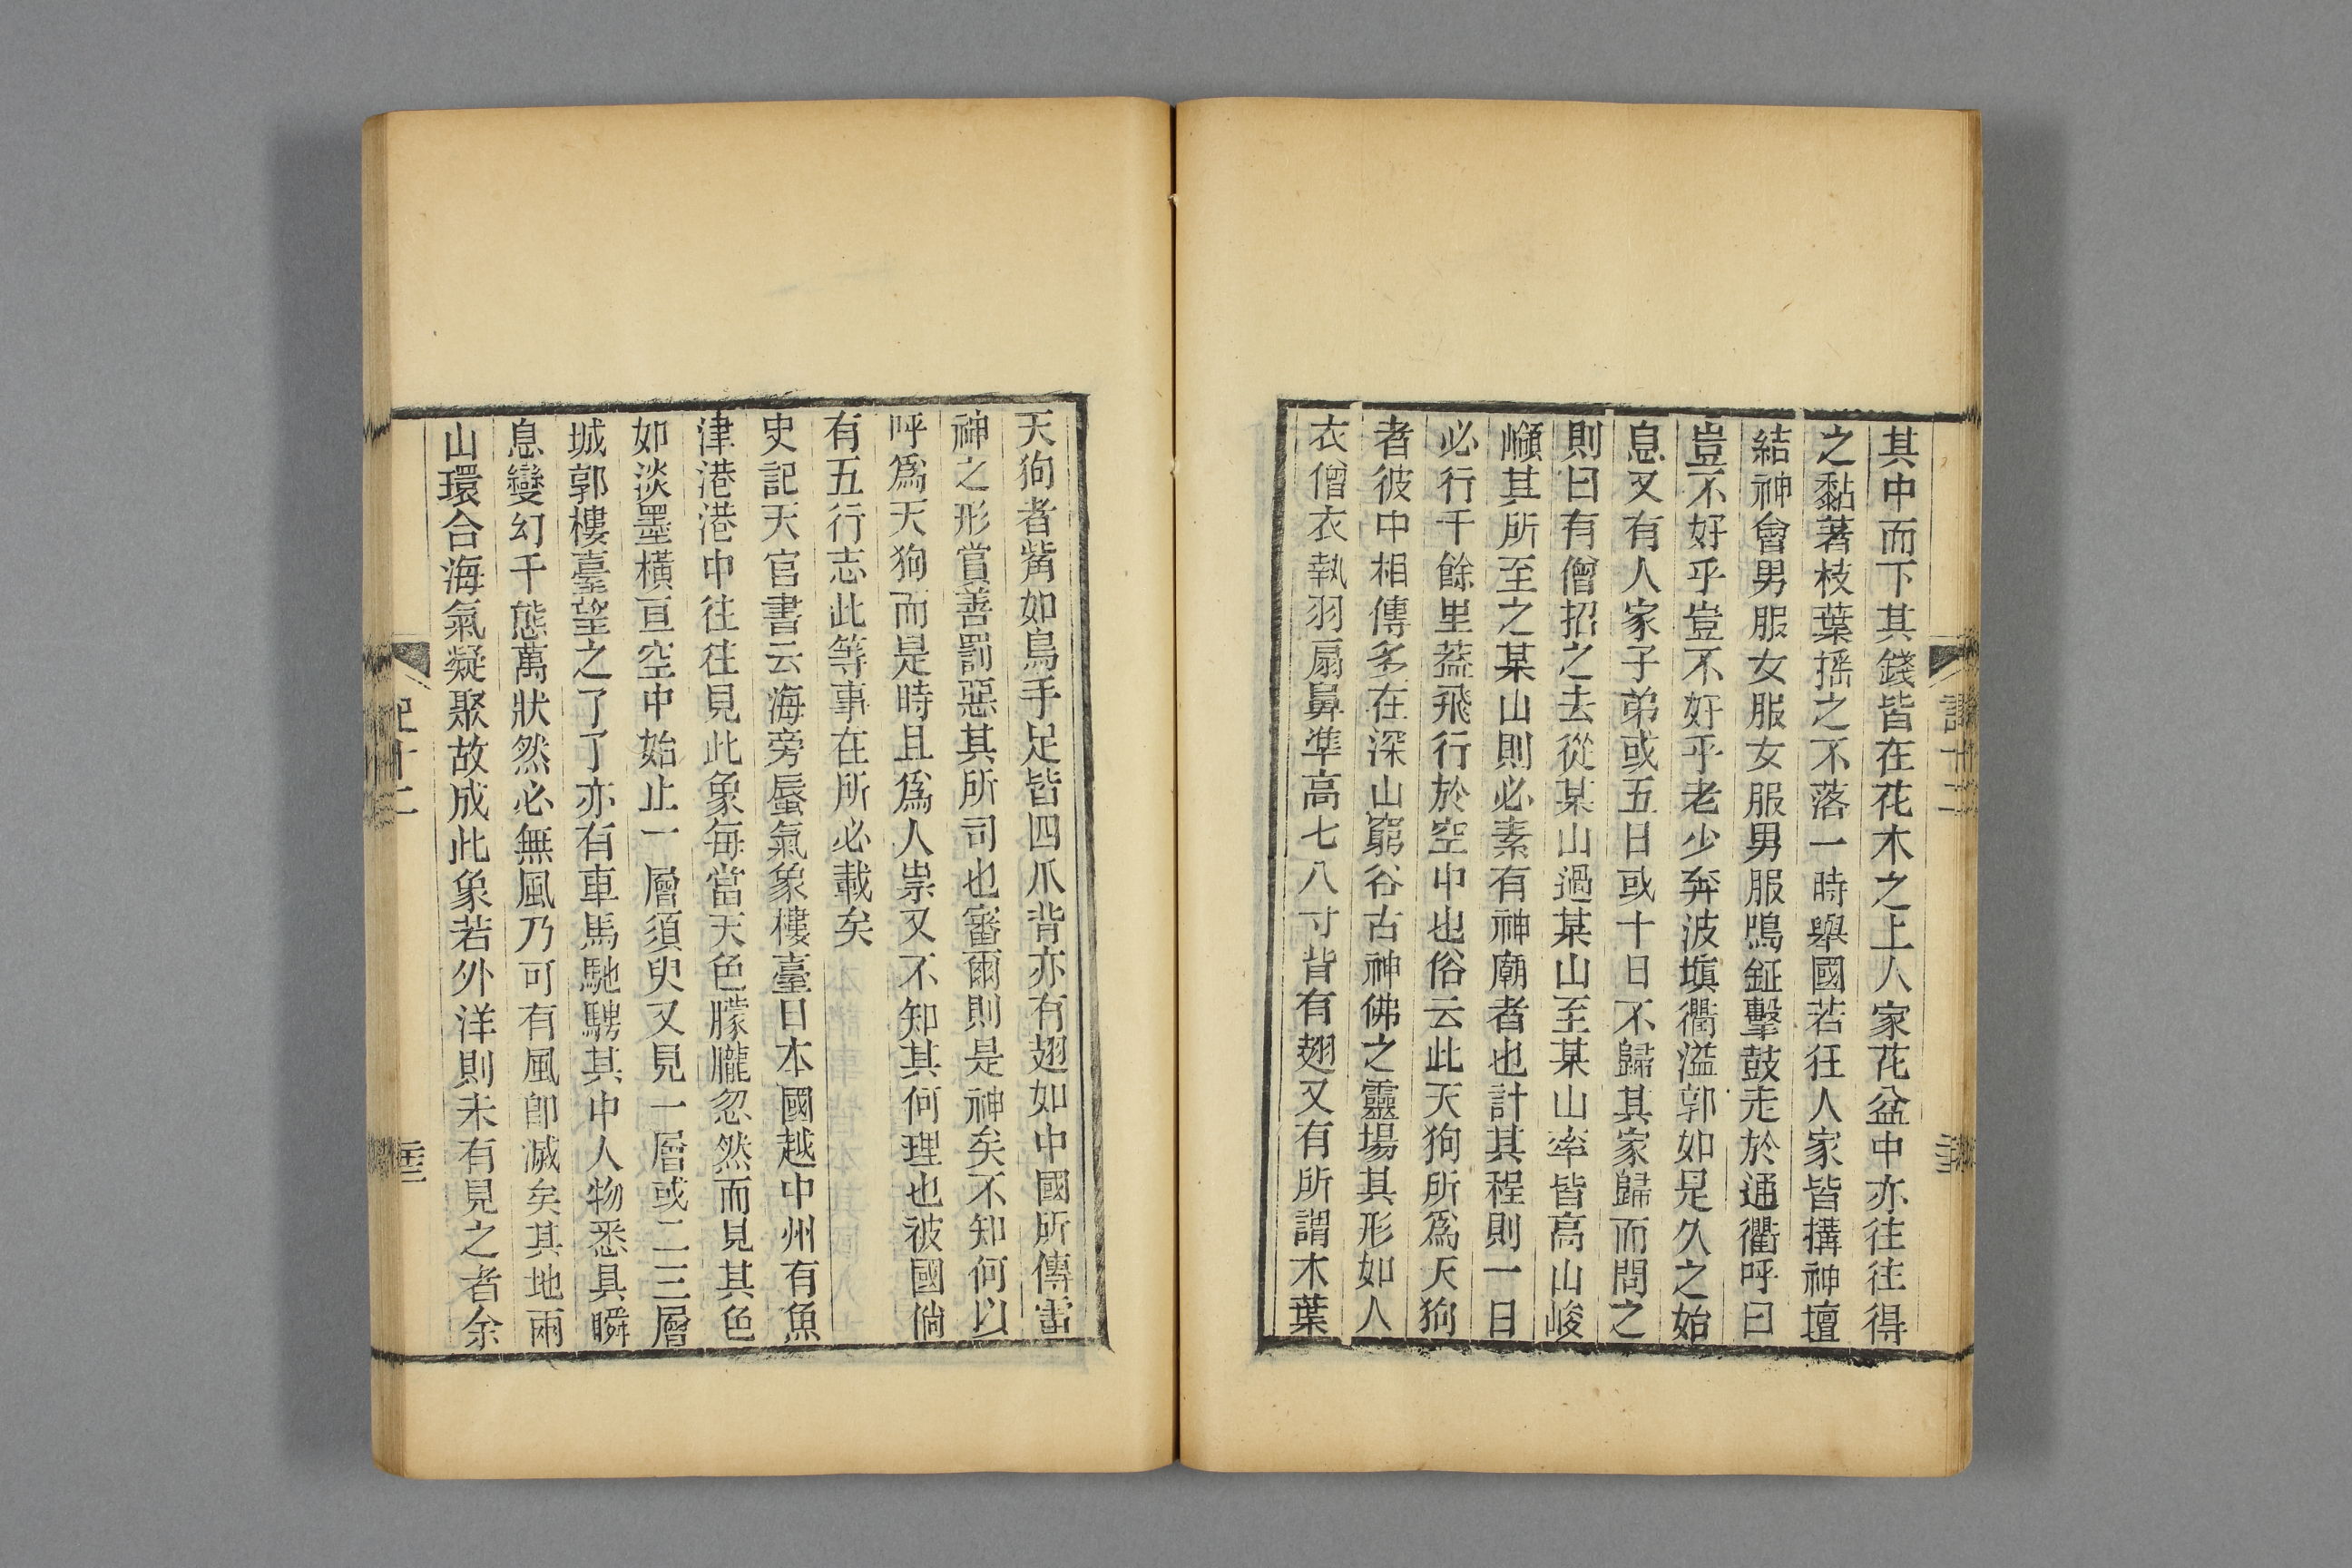 其中而下其錢皆在花木之上人家花盆中亦往往得
之黏著枝葉搖之不落一時舉國若狂人家皆搆神壇
結神會男服女服女服男服鳴鉦擊鼓走於通衢呼曰
豈不好乎豈不好乎老少奔波塡衢溢郭如是久之始
息又有人家子弟或五日或十日不歸其家歸而問之
則曰有僧招之去從某山過某山至某山率皆高山峻
嶺其所至之某山則必素有神廟者也計其程則一日
必行千餘里葢飛行於空中也俗云此天狗所爲天狗
者彼中相傳多在深山窮谷古神佛之靈場其形如人
衣僧衣執羽扇鼻準高七八寸背有翅又有所謂木葉
天狗者觜如鳥手足皆四爪背亦有翅如中國所傳雷
神之形賞善罰惡其所司也審爾則是神矣不知何以
呼爲天狗而是時且爲人祟又不知其何理也彼國倘
有五行志此等事在所必載矣
史記天官書云海旁蜃氣象樓臺日本國越中州有魚
津港港中往往見此象每當天色朦朧忽然而見其色
如淡墨橫亘空中始止一層須臾又見一層或二三層
城郭樓臺望之了了亦有車馬馳騁其中人物悉具瞬
息變幻千態萬狀然必無風乃可有風卽滅矣其地兩
山環合海氣凝聚故成此象若外洋則未有見之者余